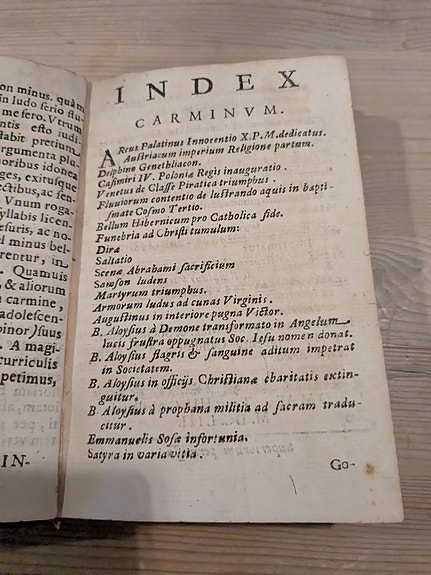 on minus. quàm
in ludo serio stu-
mesero. Vtrum
tatis esto iudi-
tabit pretium,
argumenta plu-
noribus idonea
ges, exitusque
ctibus, ac sen-
Vnum roga-
yllabis licen-
esuris, ac no-
l minus bel-
rrentur, in-
. Quamuis
& aliorum
carmine,
adolescen-
pinor) suus
. A magi-
curriculis
petimus,
IN-
INDEX
CARMINVM.
ARcus Palatinus Innocentio X. P. M. dedicatus.
Austriacum imperium Religione partum.
Delphino Genethliacon.
Casimiri IV. Poloniæ Regis inauguratio.
Venetus de Classe Piratica triumphus.
Fluuiorum contentio de lustrando aquis in bapti-
smate Cosmo Tertio.
Bellum Hibernicum pro Catholica fide.
Funebria ad Christi tumulum:
Diræ
Saltatio
Scenæ Abrahami sacrificium
Samson ludens
Martyrum triumphus.
Armorum ludus ad cunas Virginis.
Augustinus in interiore pugna Victor.
B. Aloysius à Demone transformato in Angelum
lucis frustra oppugnatus Soc. Iesu nomen donat.
B. Aloysius flagris & sanguine aditum impetrat
in Societatem.
B. Aloysius in officijs Christianæ charitatis extin-
guitur.
B Aloysius à prophana militia ad sacram tradu-
citur.
Emmanuelis Sosæ infortunia.
Satyra in varia vitia.
Go-